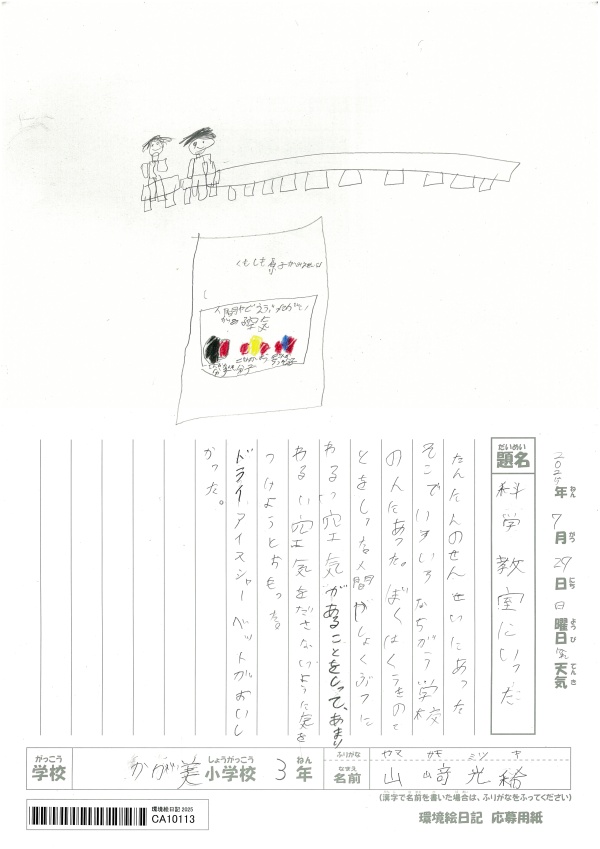 くもしも原子があれば
人間やどうぶつがすい
空気
2025年 7月 29日 日曜日 天気
ねん がつ にち ようび てんき
だいめい
題名 科学教室にいった
たんにんのせんせいにあった
そこでいろいろなちがう学校
の人にあった。ぼくはくうきのこ
とをしった。人間やしょくぶつに
わるい空気があることをしって、あまり
わるい空気をださないように気を
つけようとおもった。
ドライアイスシャーベットがおいし
かった。
がっこう しょうがっこう ねん ふりがな ヤマ ザキ ミツ キ
学校 かが美小学校 3年 なまえ 名前 山﨑光稀
(漢字で名前を書いた場合は、ふりがなをふってください)
環境絵日記 2025
CA10113
環境絵日記 応募用紙